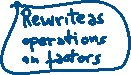 Rewrite as
operations
on factors